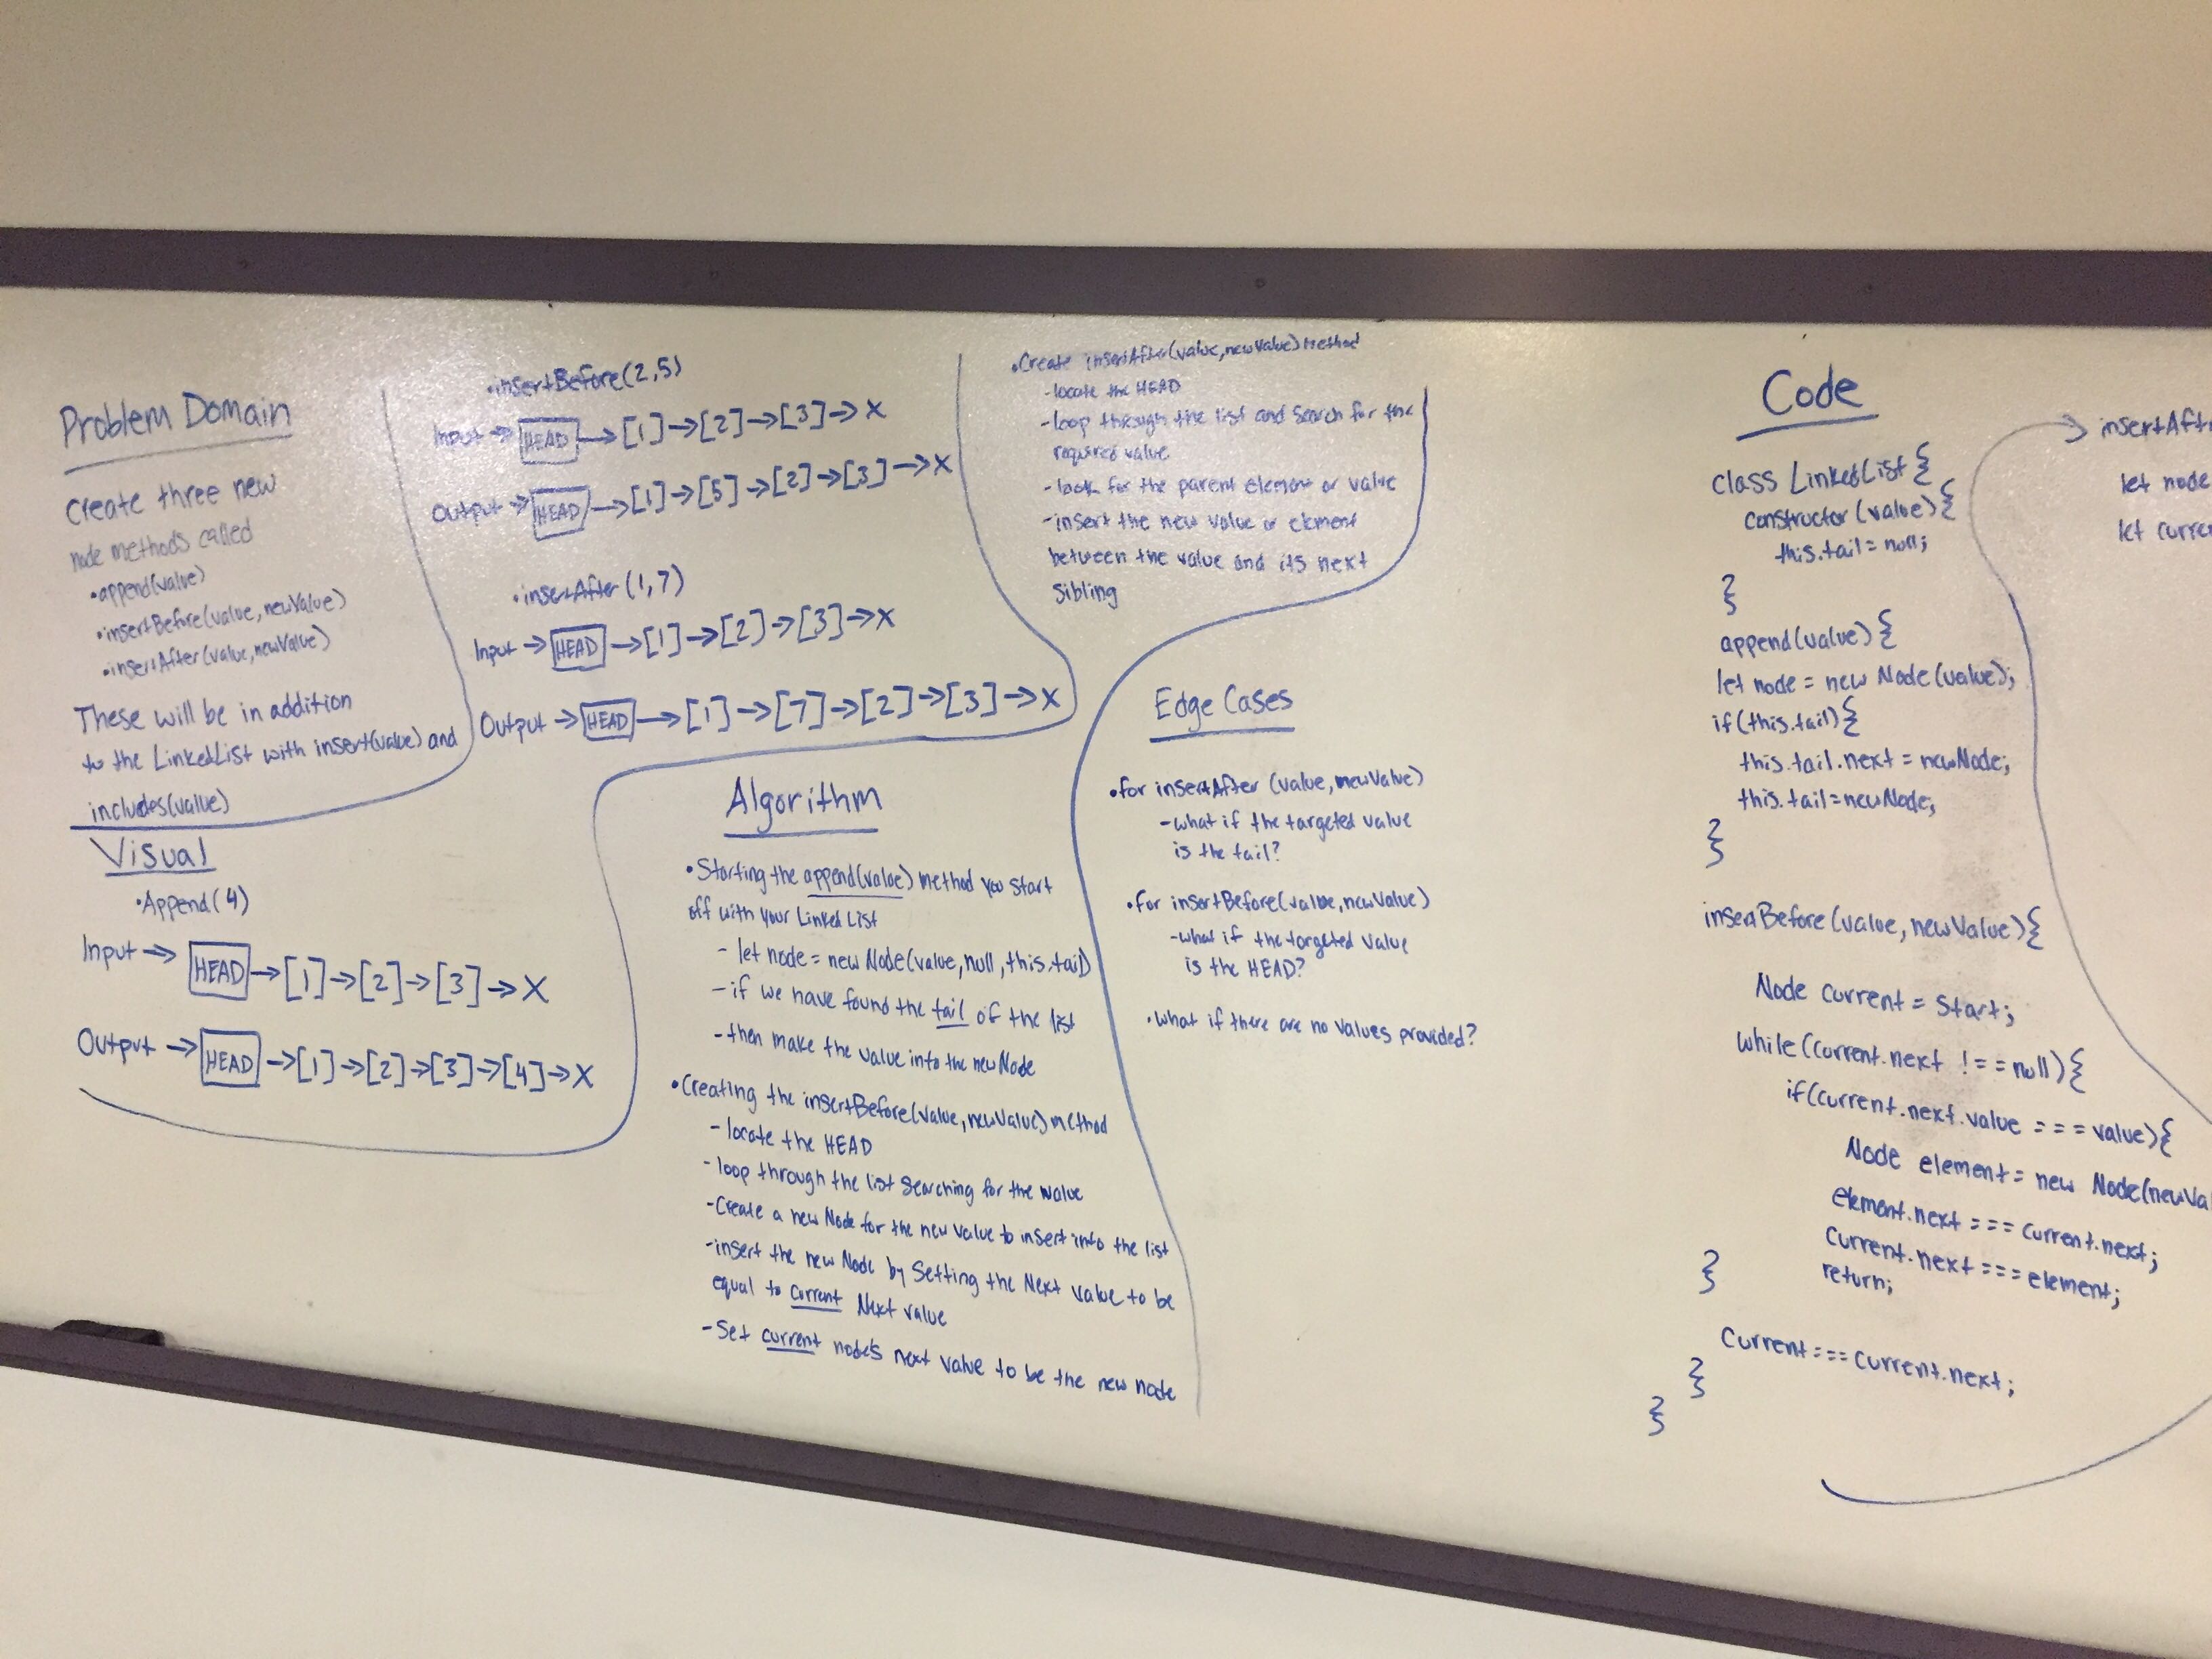 Problem Domain
Create three new
node methods called
•append(value)
•insertBefore(value, newValue)
•insertAfter(value, newValue)
These will be in addition
to the LinkedList with insert(value) and
includes(value)
Visual
•Append(4)
Input → HEAD → [1] → [2] → [3] → X
Output → HEAD → [1] → [2] → [3] → [4] → X
•insertBefore(2,5)
Input → HEAD → [1] → [2] → [3] → X
Output → HEAD → [1] → [5] → [2] → [3] → X
•insertAfter(1,7)
Input → HEAD → [1] → [2] → [3] → X
Output → HEAD → [1] → [7] → [2] → [3] → X
Algorithm
•Starting the append(value) method you start
off with your Linked List
- let node = new Node(value, null, this.tail)
- if we have found the tail of the list
- then make the value into the newNode
•Creating the insertBefore(value, newValue) method
- locate the HEAD
- loop through the list searching for the value
- Create a new Node for the new value to insert into the list
- insert the new Node by setting the Next value to be
equal to current Next value
- Set current node's next value to be the new node
•Create insertAfter(value, newValue) Method
- locate the HEAD
- loop through the list and search for the
required value
- look for the parent element or value
- insert the new value or element
between the value and its next
sibling
Edge Cases
•for insertAfter (value, newValue)
- what if the targeted value
is the tail?
•for insertBefore(value, newValue)
- what if the targeted value
is the HEAD?
•what if there are no values provided?
Code
class LinkedList {
constructor (value) {
this.tail = null;
}
append(value) {
let node = new Node(value);
if(this.tail) {
this.tail.next = newNode;
this.tail = newNode;
}
insertBefore(value, newValue) {
Node current = start;
while(current.next !== null) {
if(current.next.value === value) {
Node element = new Node(newVa
element.next === current.next;
current.next === element;
return;
}
Current === current.next;
}
}
→ insertAft
let node
let curre